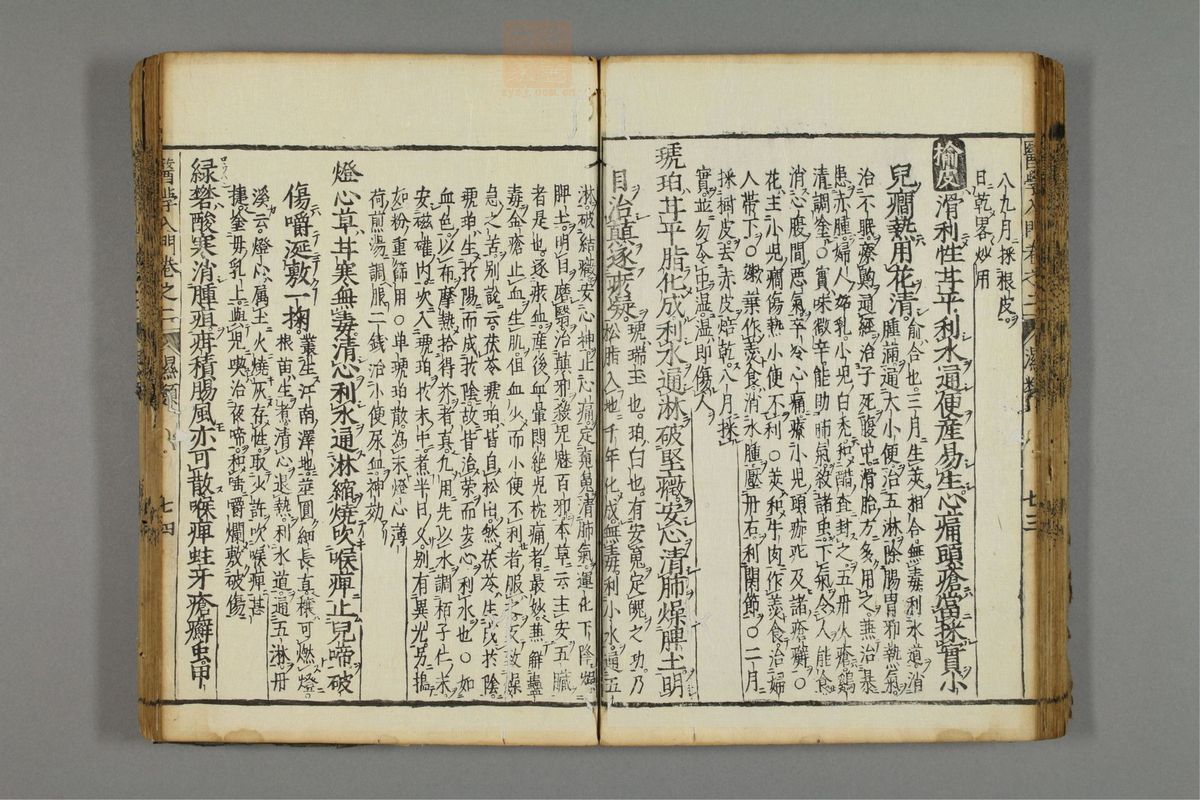 八九月採根皮
日乾畧炒用
榆皮滑利性甘平利水通便産易生心痛頭瘡當採實小
兒癇熱用花清
俞合也三月生莢相合無毒利水道消
腫滿通大小便治五淋除腸胃邪熱氣
治不眠療齁通經治子死腹中滑胎方多用之兼治暴
患赤腫婦人妬乳小兒白禿和醋查封之五丹火瘡雞
清調塗○實味微辛能助肺氣殺諸虫下氣令人能食
消心腹間惡氣卒冷心痛療小兒頭瘡及諸瘡癬○
花主小兒癇傷熱小便不利○莢和牛肉作羹食治婦
人帶下○嫩葉作羹食消水腫壓丹石利關節○二月
採樹皮去赤皮焙乾八月採
實並勿令中濕濕即傷人
琥珀甘平脂化成利水通淋破堅癥安心清肺燥脾土明
目治顛逐瘀
琥瑞玉也珀白也有安魂定魄之功乃
松脂入地千年化成無毒利小水通五
淋破結癥安心神止心痛定魂魄清肺氣運化下降燥
脾土明目磨翳治顛邪殺鬼魅百邪本草云主安五臟
者是也逐瘀血産後血暈悶絶兒枕痛者最妙兼解蠱
毒金瘡止血生肌但血少而小便不利者服之反致燥
急之苦別說云茯苓琥珀皆自松出然茯苓生於陰
琥珀生於陽而成於陰故皆治榮而安心利水也○如
血色以布摩熱拾得芥者真凡用先以水調栢子仁末
安磁確内次入琥珀於末中煮半日久別有異光另搗
如粉重篩用○单琥珀散為末燈心薄
荷煎湯調服二錢治小便尿血神効
燈心草甘寒無毒清心利水通淋縮燒吹喉痺止兒啼破
傷嚼涎敷一掬
叢生江南澤地莖圓細長直穰可燃燈
根苗生煮清心退熱利水道通五淋丹
溪云燈心属土火燒灰存性取少許吹喉痺甚
捷塗母乳上與兒喫治夜啼和唾嚼爛敷破傷
緑礬酸寒消腫疽疳積腸風亦可散喉痺蛀牙瘡癬虫甲
醫學入門卷之二
濕類
七三
醫學入門卷之二
濕類
七四